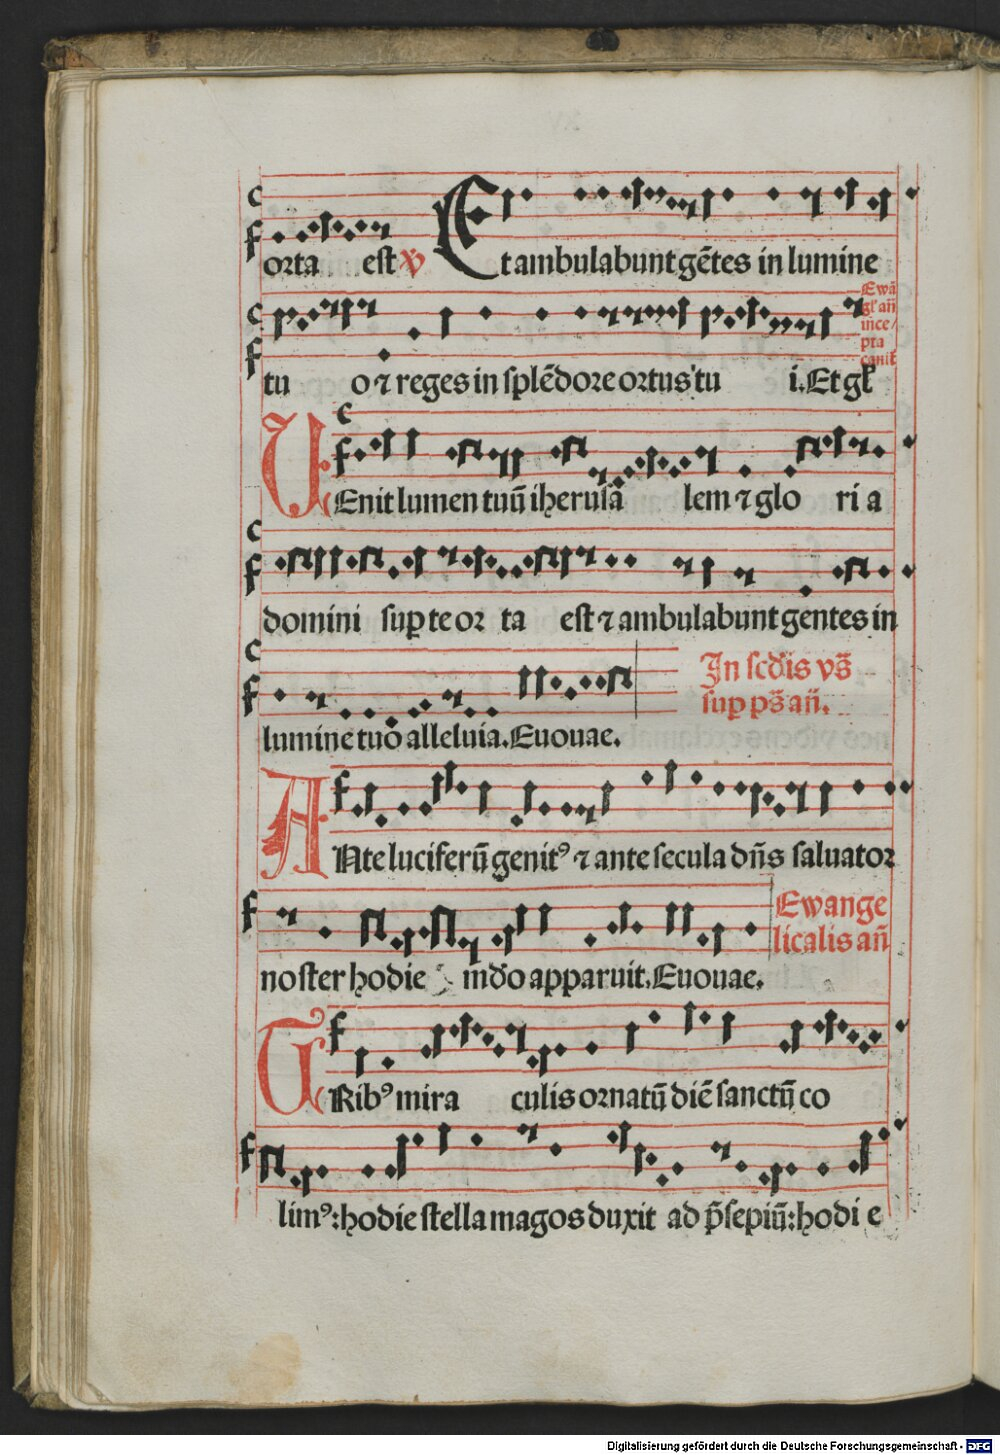 orta est v Et ambulabunt gētes in lumine
Ewā
gł añ
uice/
pta
canit
tu o ⁊ reges in splēdore ortus tu i. Et gł
VEnit lumen tuū iherusā lem ⁊ glo ri a
domini sup te or ta est ⁊ ambulabunt gentes in
In scdis vs̄
sup ps̄ añ.
lumine tuo alleluia. Euouae.
ANte luciferū genitꝰ ⁊ ante secula dn̄s saluator
Ewange
licalis añ
noster hodie mdo apparuit. Euouae.
TRibꝰ mira culis ornatū diē sanctū co
limꝰ: hodie stella magos duxit ad p̄sepiū: hodi e
Digitalisierung gefördert durch die Deutsche Forschungsgemeinschaft - DFG